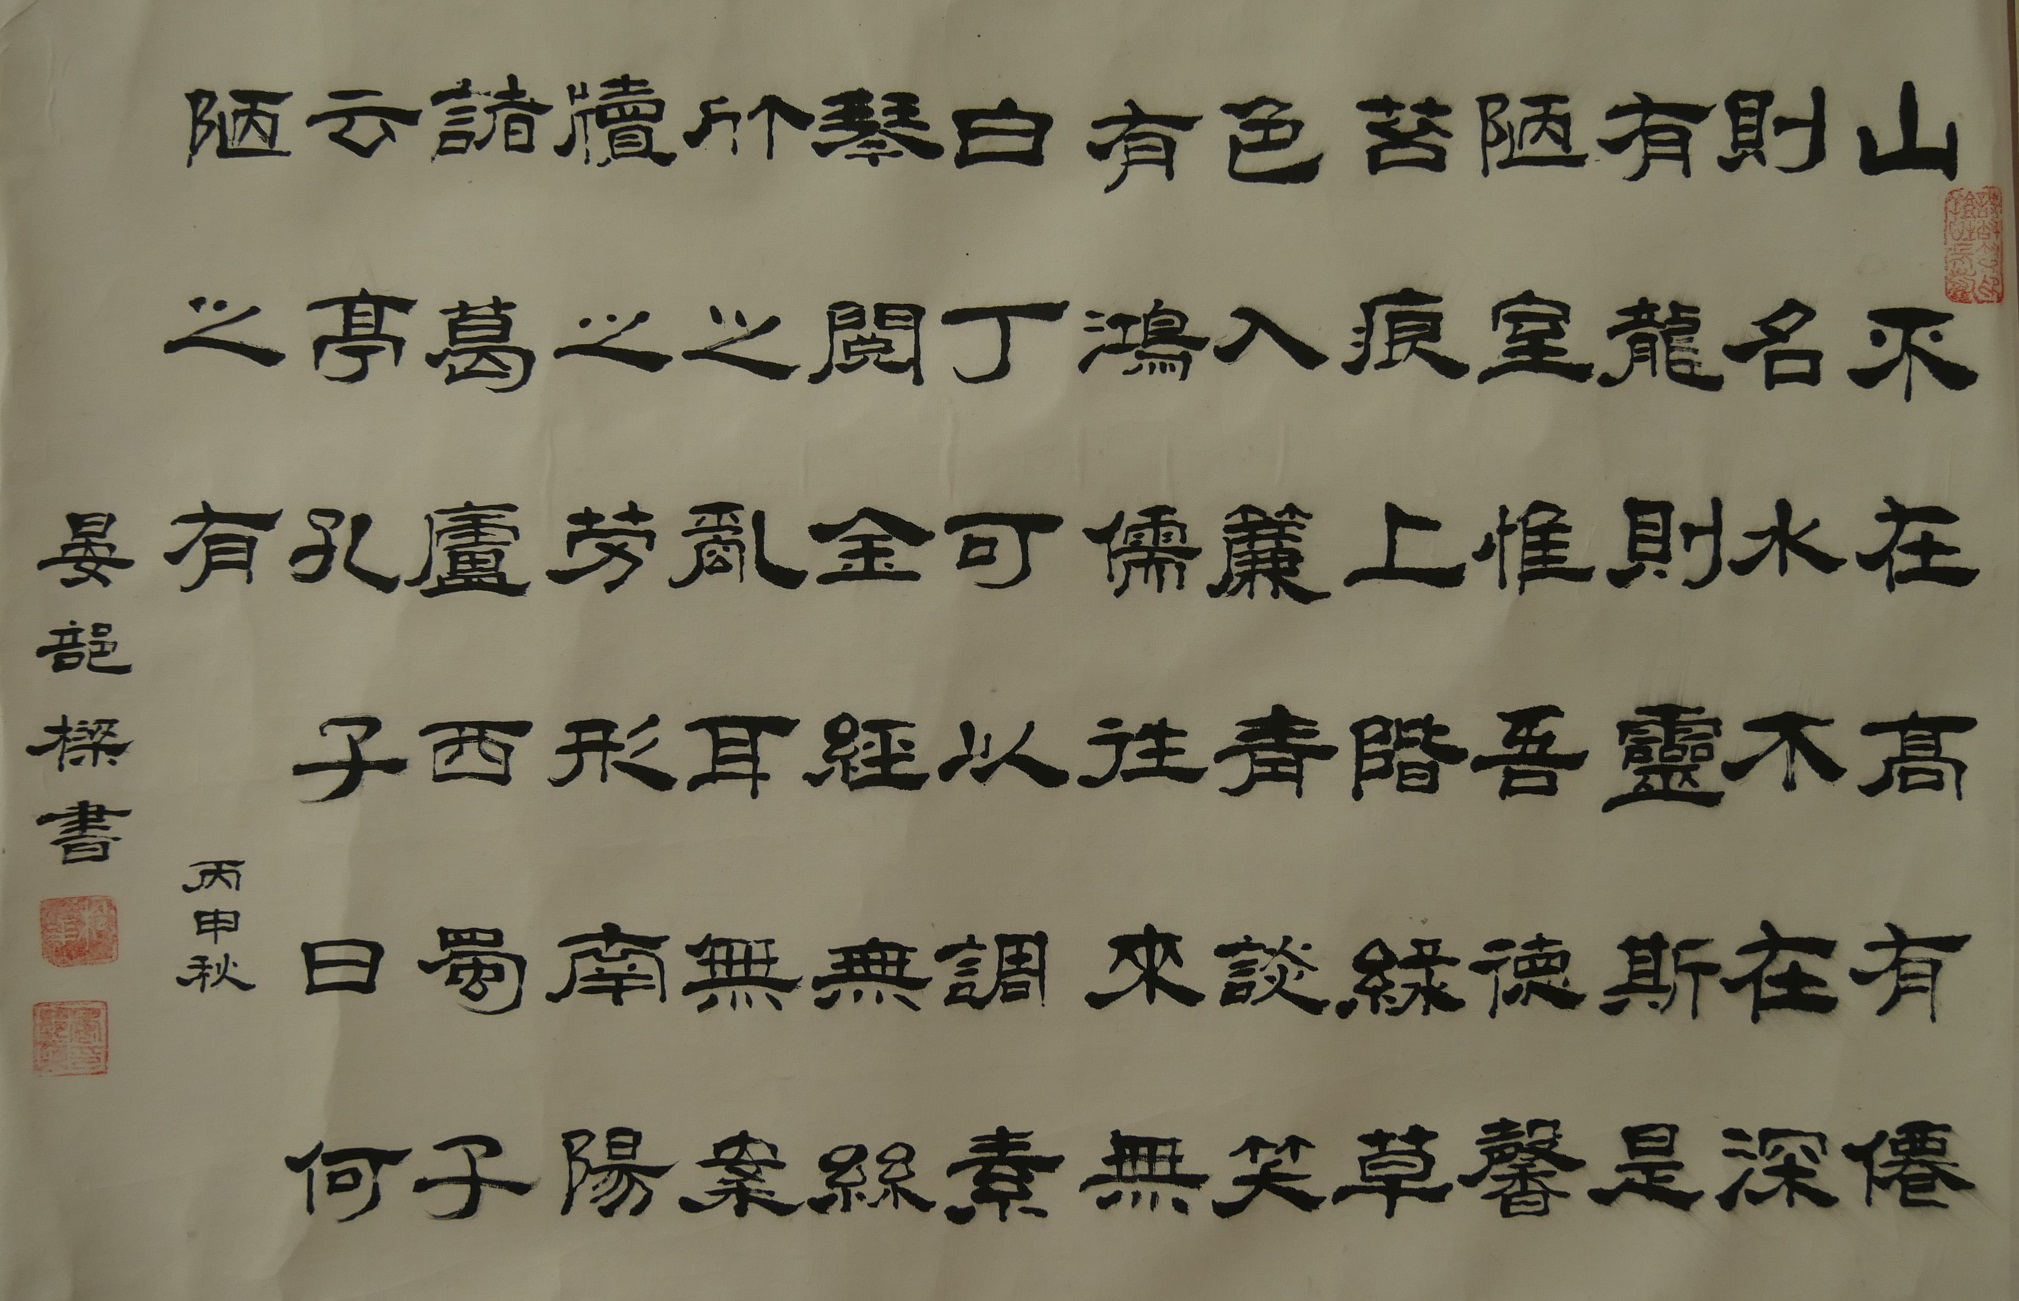 山不在高有僊
則名水不在深
有龍則靈斯是
陋室惟吾德馨
苔痕上階緑草
色入簾青談笑
有鴻儒往來無
白丁可以調素
琴閱金經無絲
竹之亂耳無案
牘之勞形南陽
諸葛廬西蜀子
云亭孔子曰何
陋之有
丙申秋
晏樑書